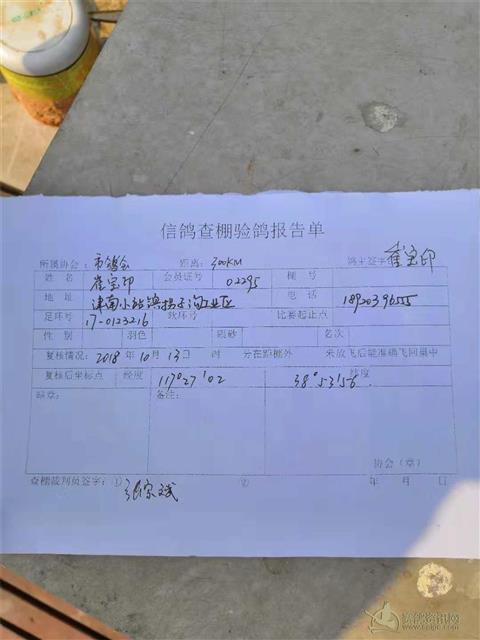 信鸽查棚验鸽报告单
所属协会: 市鸽会 距离: 300KM 鸽主签字 崔宝印
姓名 崔宝印 会员证号 02295 棚号
地址 津南小站镇 工业区 电话
足环号 17-0123216 胶环号 比赛起止点
性别 羽色 眼砂 名次
复核情况: 2018年10月13日 时 分在距棚外 米放飞后能准确飞回巢中
复核后坐标点 经度 117°27'02 纬度 38°53'56
缺章: 备注:
协会(章)
查棚裁判员签字: ① 张宗斌 ② 年 月 日
赛鸽资讯网